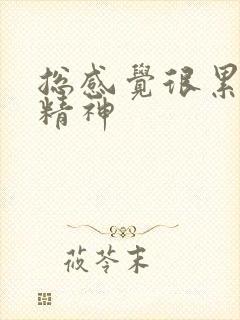 總感覺很累
精神
莜苓末